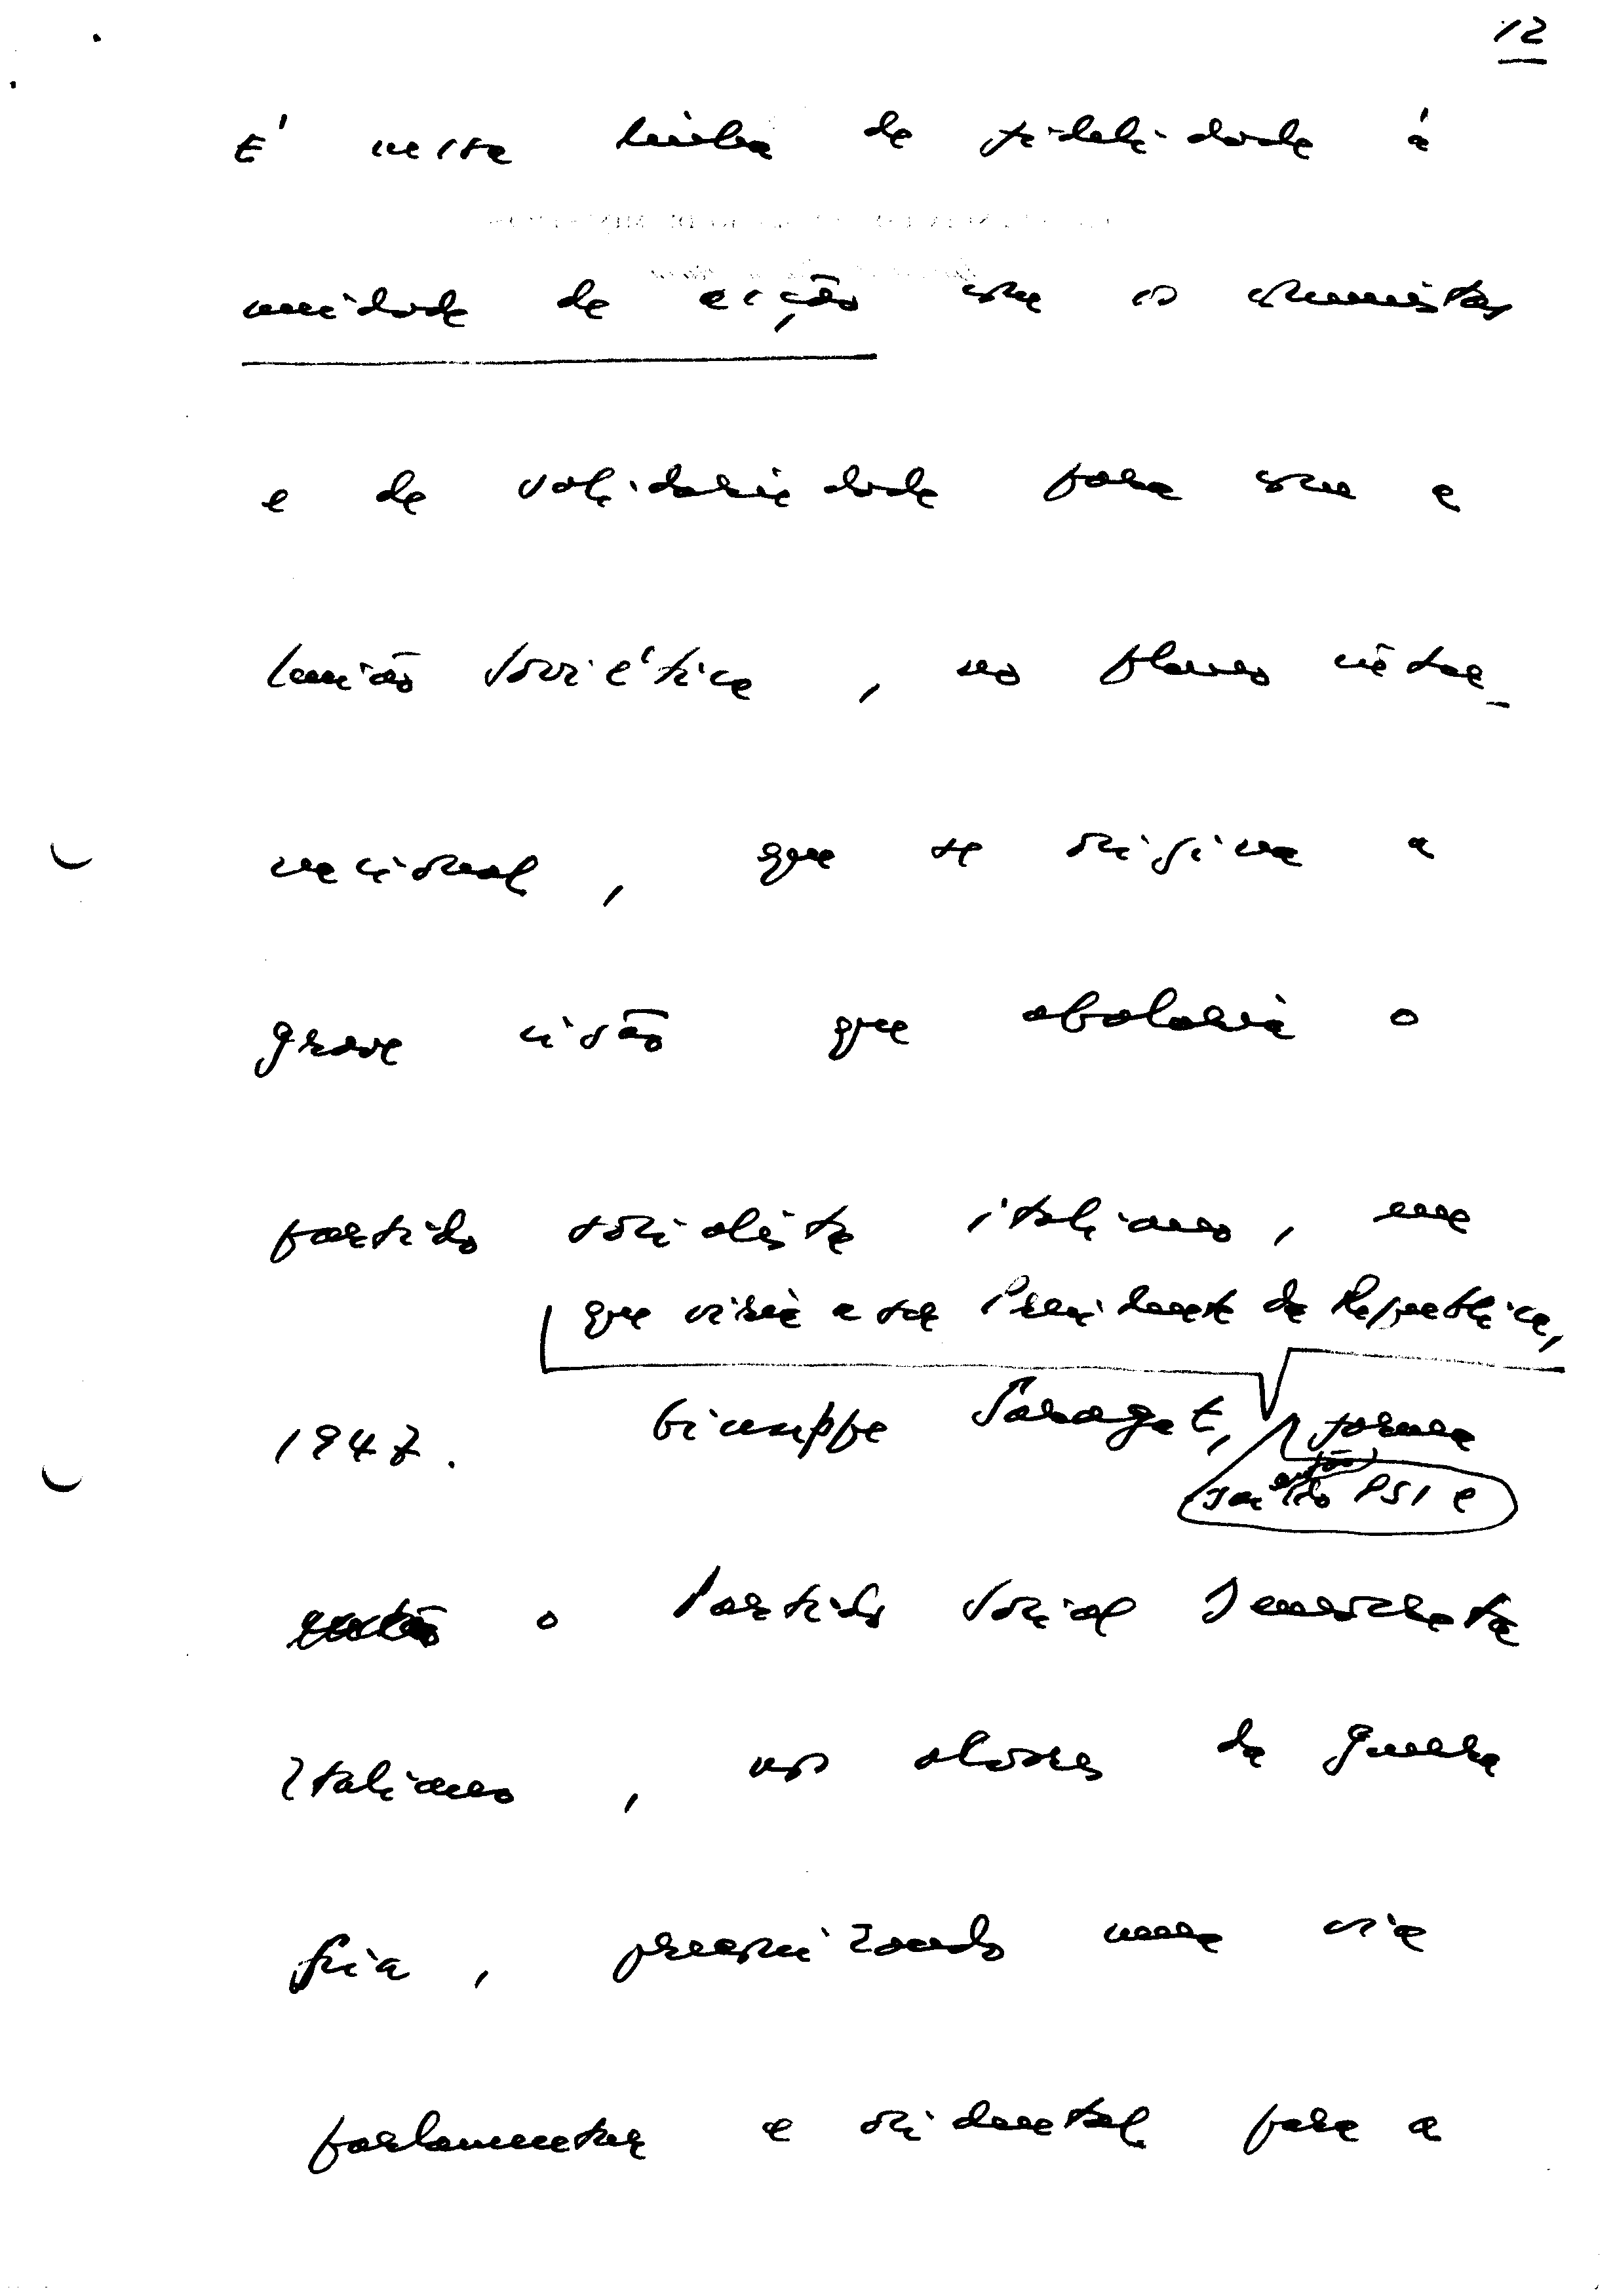 12
E' nesta linha de fidelidade à
unidade de acção com os comunistas
e de solidariedade para com a
União Soviética, no plano inter-
nacional, que se origina a
grave cisão que abalaria o
partido socialista italiano, em
que viria a ser Presidente da República,
1947. Giuseppe Saragat, forma
então
sai do PSI e
então o Partido Social Democrata
Italiano, nos alvores da guerra
fria, preconizando uma via
parlamentar e ocidental para a